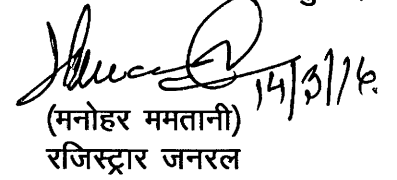 14/3/16.
(मनोहर ममतानी)
रजिस्ट्रार जनरल